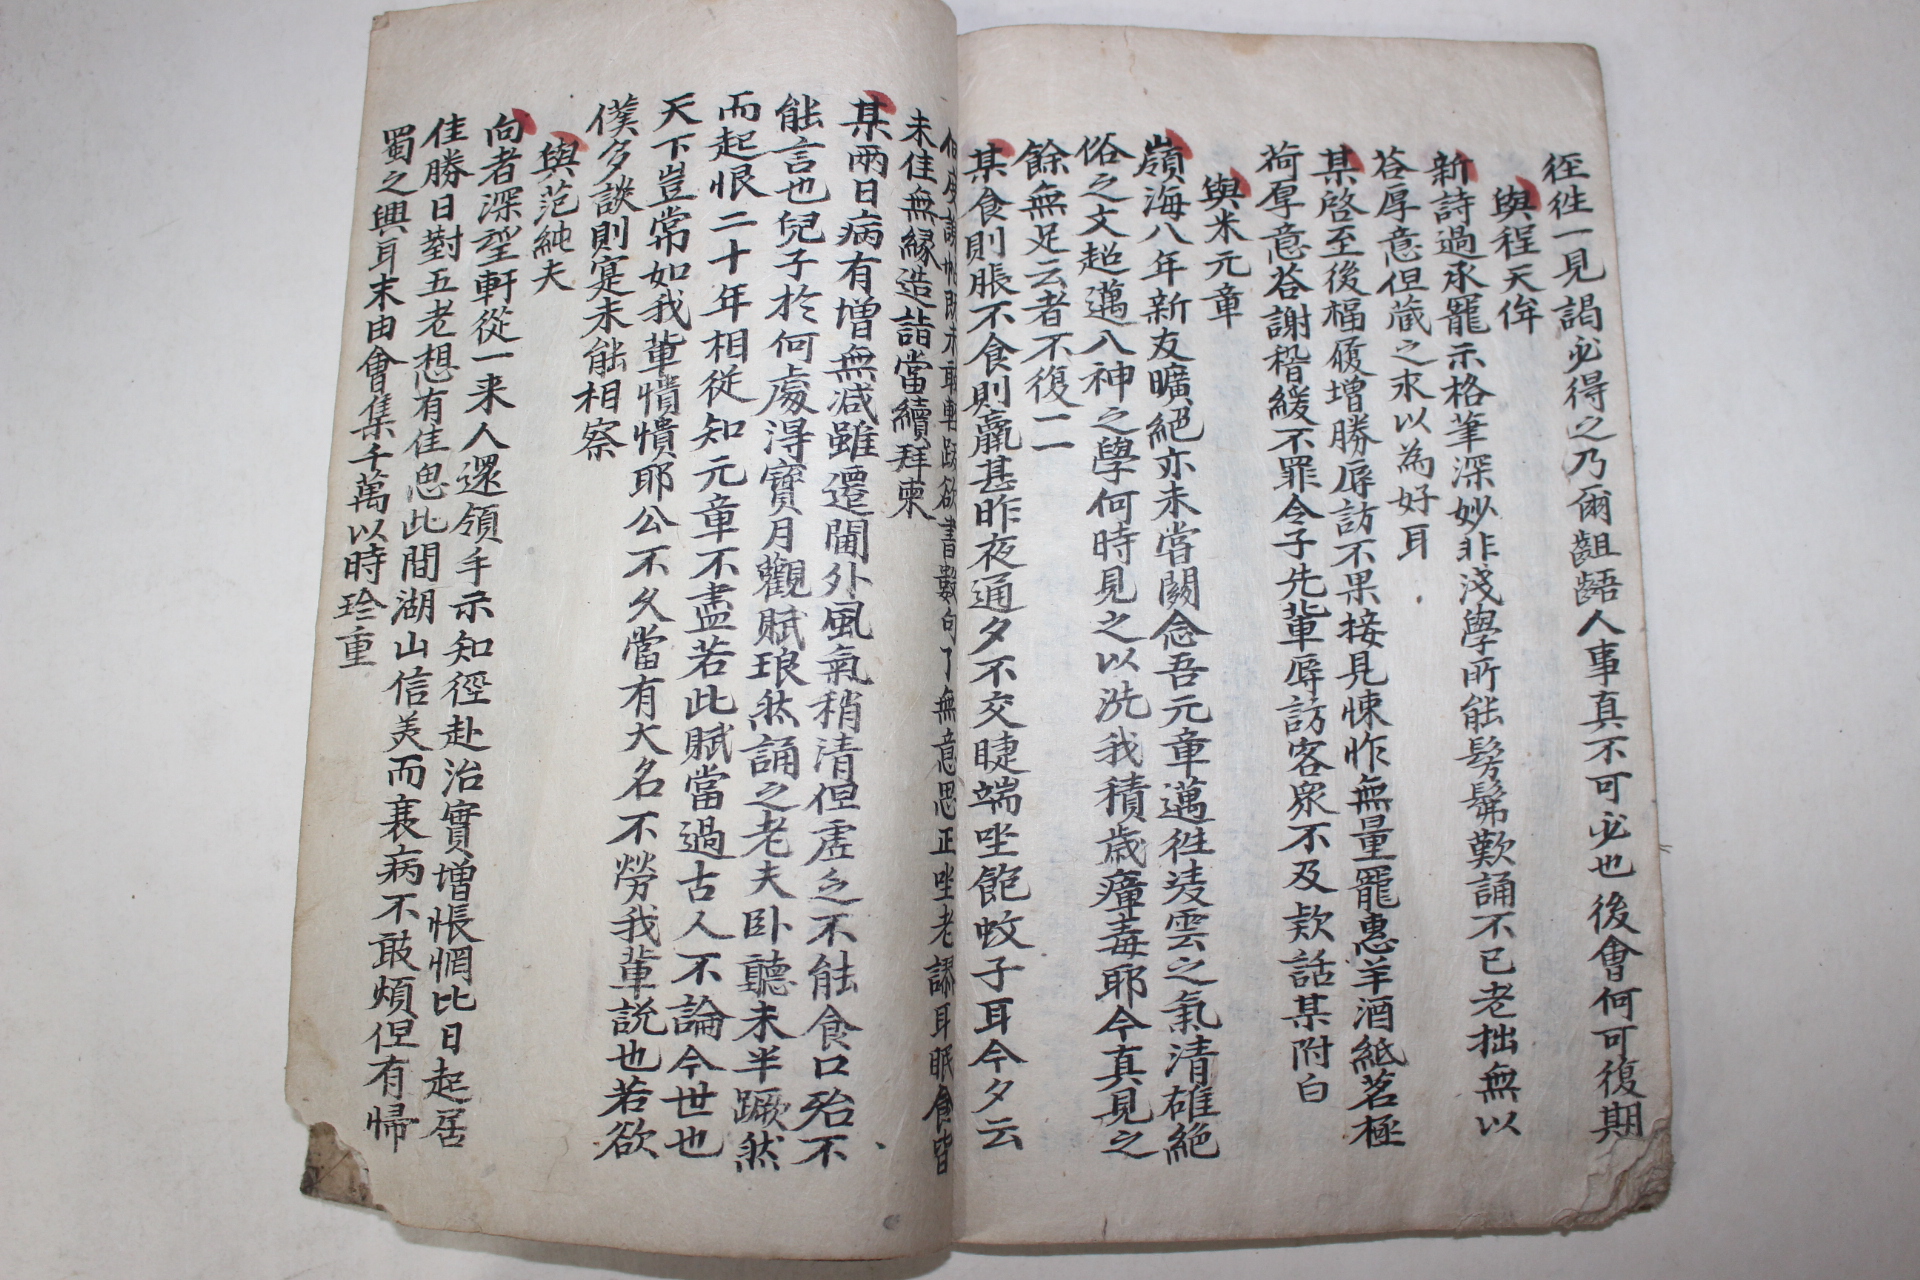 徃徃一見謁必得之乃爾齟齬人事真不可必也後會何可復期
與程天侔
新詩過承寵示格筆深妙非淺學所能髣髴歎誦不已老拙無以
荅厚意但藏之永以為好耳
某啓至後福履增勝辱訪不果接見悚怍無量寵惠羊酒紙茗極
荷厚意荅謝稽緩不罪令子先輩辱訪客衆不及欵話某附白
與米元章
嶺海八年新友曠絕亦未甞闕念吾元章邁徃凌雲之氣清雄絕
俗之文超邁八神之學何時見之以洗我積歲瘴毒耶今真見之
餘無足云者不復一一
某食則脹不食則羸甚昨夜通夕不交睫端坐飽蚊子耳今夕云
何度謝帖既未敢輕跋欲書數句了無意思正坐老謬耳眠食皆
未佳無緣造詣當續拜柬
某兩日病有增無减雖遷閘外風氣稍清但虛乏不能食口殆不
能言也兒子於何處淂寶月觀賦琅然誦之老夫卧聽未半蹶然
而起恨二十年相從知元章不盡若此賦當過古人不論今世也
天下豈常如我輩憒憒耶公不久當有大名不勞我輩説也若欲
僕多談則寔未能相察
與范純夫
向者深望軒從一来人還領手示知徑赴治實增悵惘比日起居
佳勝日對五老想有佳思此間湖山信美而衰病不敢煩但有歸
蜀之興耳末由會集千萬以時珍重